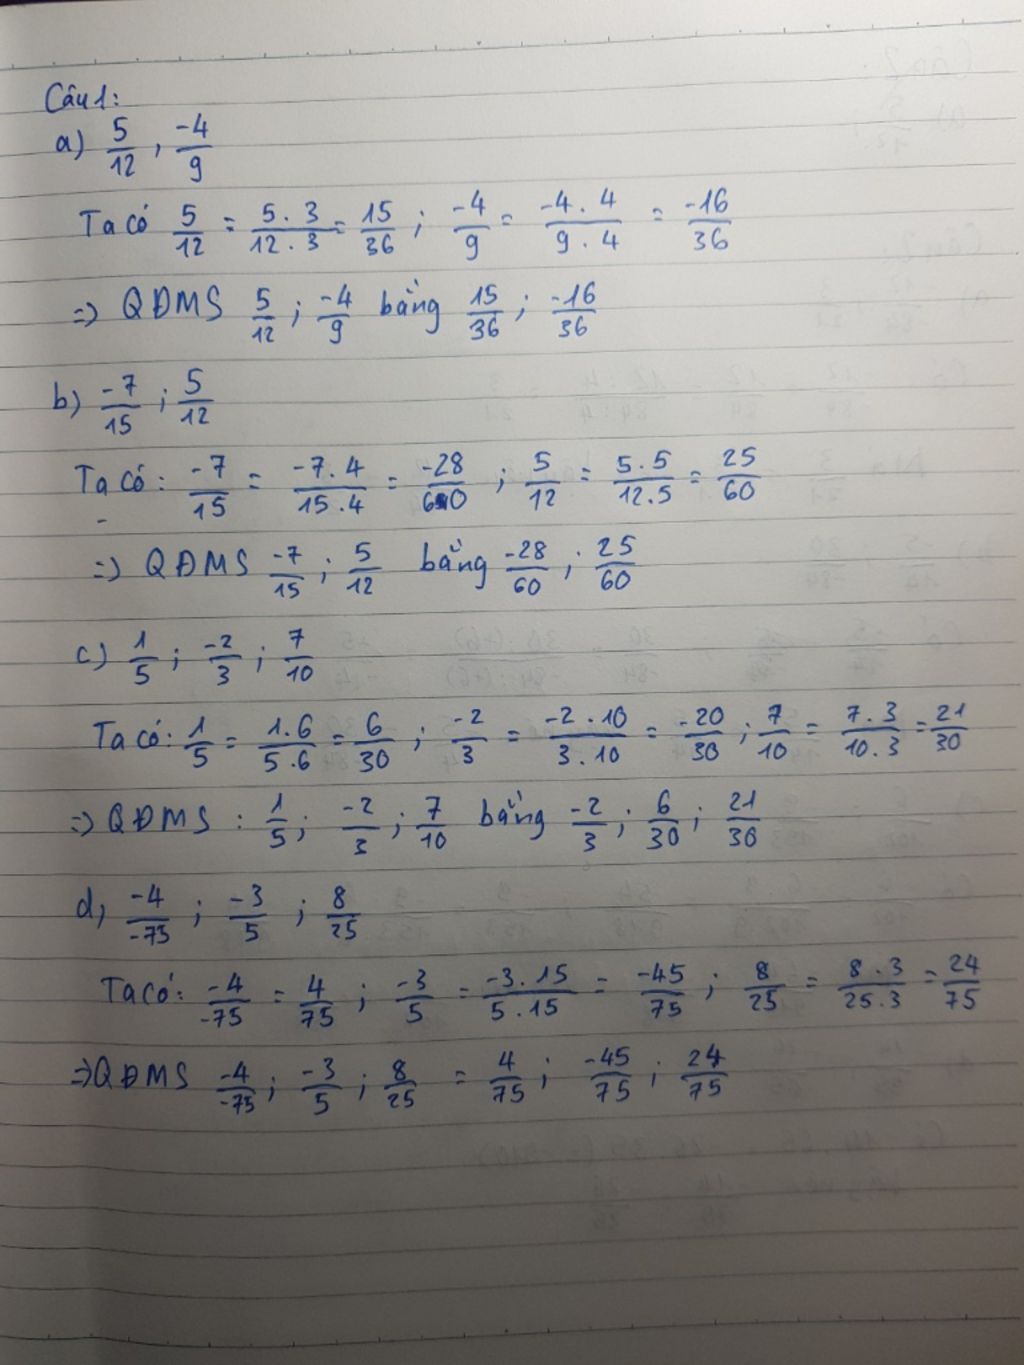 Câu 1:
a) 5/12 , -4/9
Ta có 5/12 = 5.3/12.3 = 15/36 ; -4/9 = -4.4/9.4 = -16/36
=> QĐMS 5/12 ; -4/9 bằng 15/36 ; -16/36
b) -7/15 ; 5/12
Ta có: -7/15 = -7.4/15.4 = -28/60 ; 5/12 = 5.5/12.5 = 25/60
=> QĐMS -7/15 ; 5/12 bằng -28/60 ; 25/60
c) 1/5 ; -2/3 ; 7/10
Ta có: 1/5 = 1.6/5.6 = 6/30 ; -2/3 = -2.10/3.10 = -20/30 ; 7/10 = 7.3/10.3 = 21/30
=> QĐMS : 1/5 ; -2/3 ; 7/10 bằng -2/3 ; 6/30 ; 21/30
d, -4/-75 ; -3/5 ; 8/25
Ta có: -4/-75 = 4/75 ; -3/5 = -3.15/5.15 = -45/75 ; 8/25 = 8.3/25.3 = 24/75
=> QĐMS -4/-75 ; -3/5 ; 8/25 = 4/75 ; -45/75 ; 24/75